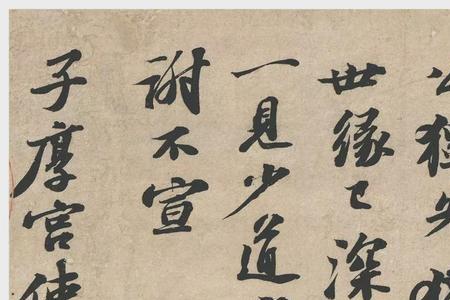 公獨先
世緣已深
一見少道
謝不宣
子厚宮使